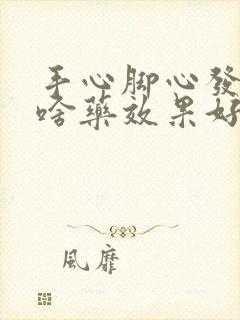 手心脚心發
啥藥效果好
風靡